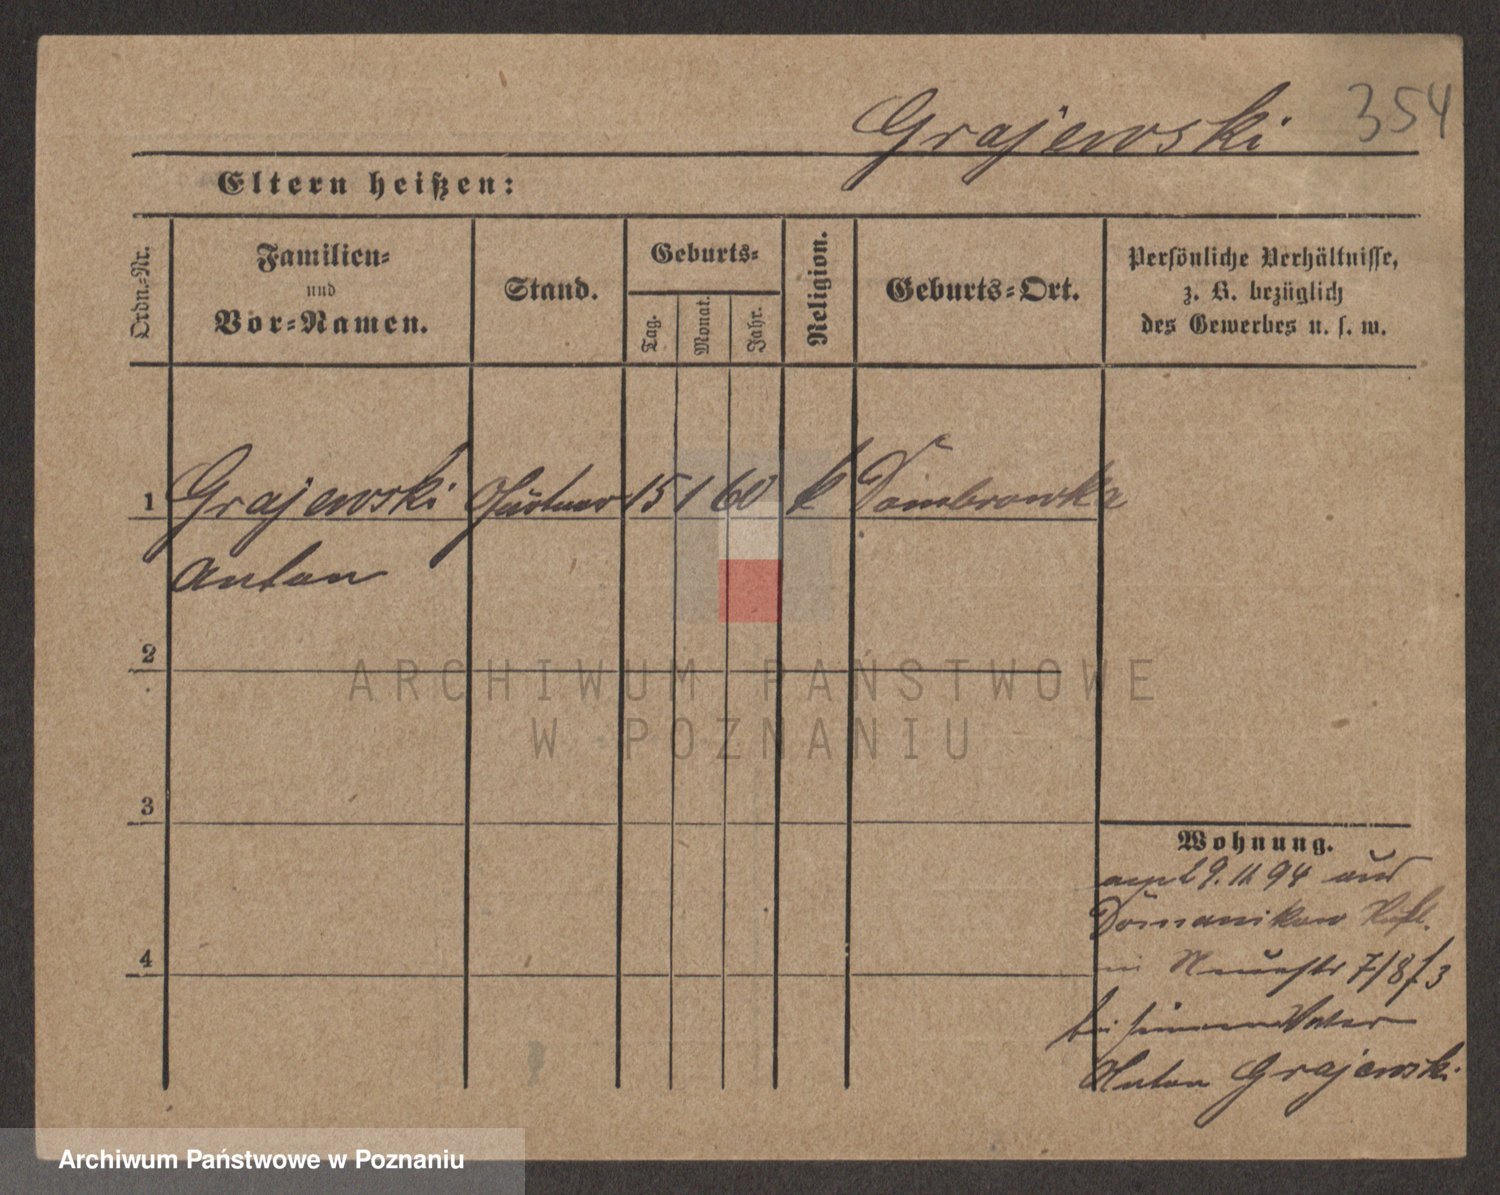 Grajewski 354
Eltern heißen:
Ordn.-Nr.
Familien-
und
Vor-Namen.
Stand.
Geburts-
Tag.
Monat.
Jahr.
Religion.
Geburts-Ort.
Persönliche Verhältnisse,
z. B. bezüglich
des Gewerbes u. s. w.
1 Grajewski Gärtner 15 1 60 k Dombrowka
Anton
2
ARCHIWUM PAŃSTWOWE
W POZNANIU
3
Wohnung.
29. 11 94 aus
Domanikow
in 7/8 f 3
4
bei seinem Vater
Anton Grajewski
Archiwum Państwowe w Poznaniu